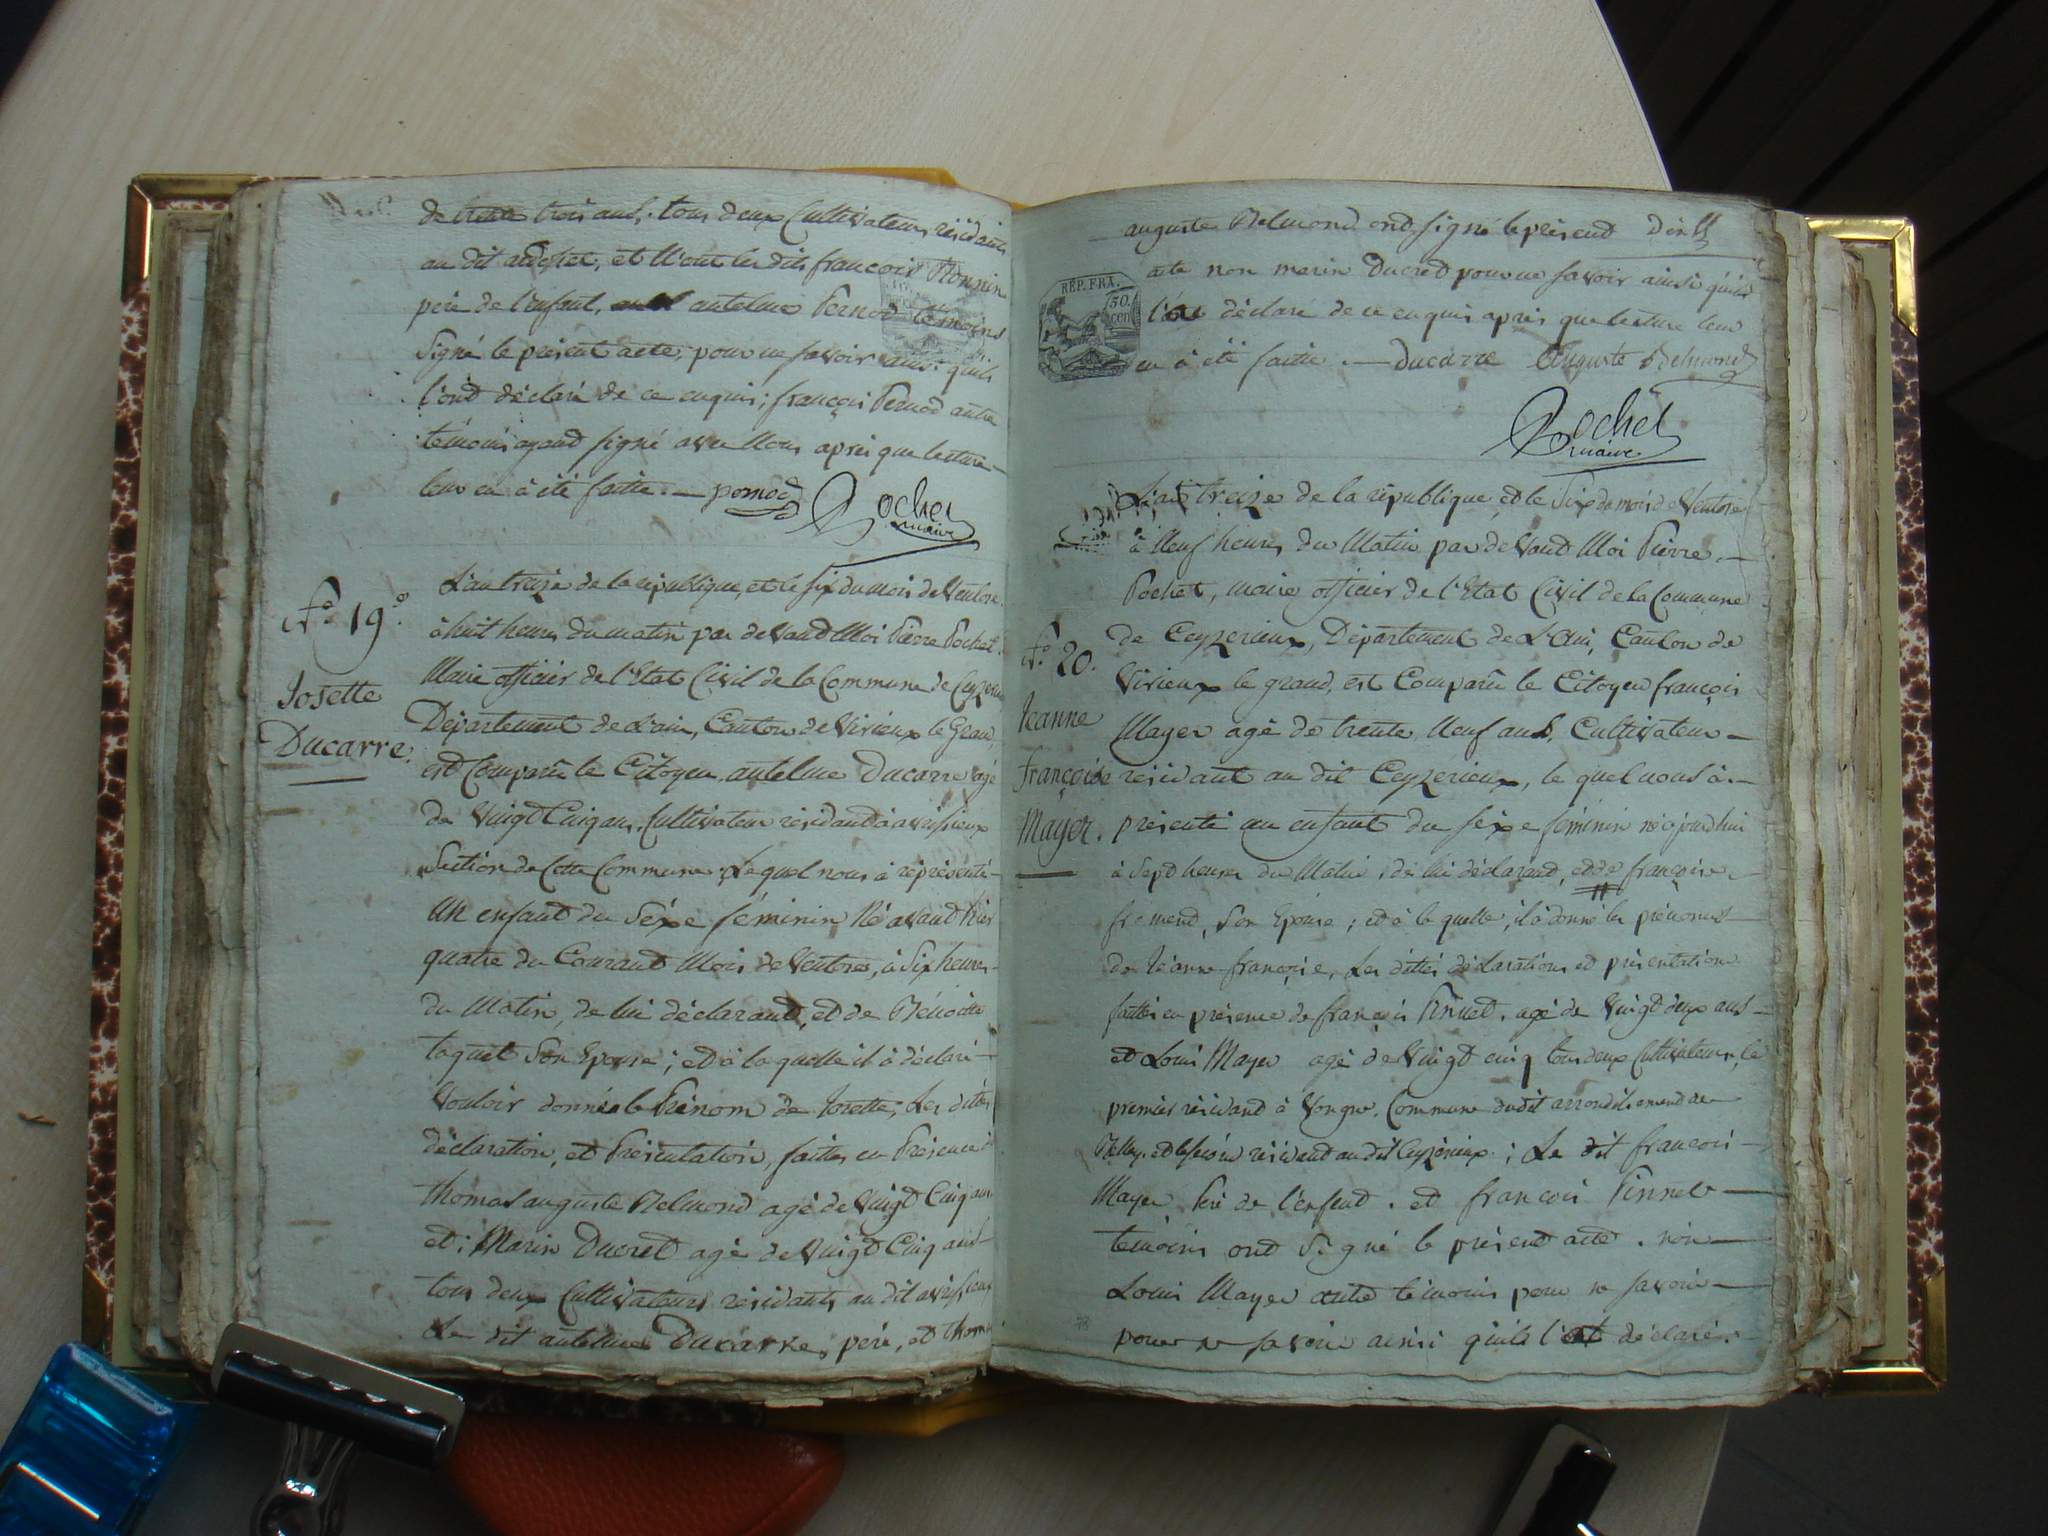 de trente trois ans, tous deux Cultivateurs résidants
au dit , et N'ont les dits françois Monnin
père de l'enfant, antelme Pernod témoins
Signé le présent acte, pour ne savoir ainsi quils
l'ond déclaré de ce enquis; françois Pernod autre
témoins ayand signé avec Nous après que lecture
leur en à été faitte. — pernod Pochet
maire
N.o 19.o
Josette
Ducarre.
L'an treize de la république, et le six du mois de Ventose
à huit heures du matin par devand Moi Pierre Pochet
Maire officier de l'Etat Civil de la Commune de Ceyzerieu
Département de L'ain, Canton de Virieux le Grand,
est Comparû le Citoyen antelme Ducarre agé
de Vuigd Cinq ans, Cultivateur résidand à avrissieux
Section de Cette Commune, Lequel nous à représenté
Un enfand du Séxe féminin Né avand hier
quatre du Courand Mois de Ventose, à Six heures
du Matin, de lui déclarand, et de Bénoitte
taquet Son Epouse; et à la quelle il à déclaré
Vouloir donnér le Prénom de Josette, Les dittes
déclaration, et Présentation, faittes en Présence de
thomas auguste Belmond agé de Vuigd Cinq ans
et; Marin Ducret agé de Vuigd Cinq ans
tous deux Cultivateurs résidants au dit avrissieux
Le dit antelme Ducarre, péré, et thomas
auguste Belmond ond signé le présend Dix
acte non marin Ducred pour ne savoir ainsi quils
REP. FRA.
50.
cen
l'ont déclaré de ce enquis après que lecture leur
en à été faitte. — Ducarre Auguste Belmond
Pochet
maire
L'an treize de la république et le Six du mois de Ventose
à Neuf heures du Matin par devand Moi Pierre —
Pochet, maire officier de l'Etat Civil de la Commune
N.o 20.
Jeanne
Françoise
Mayer.
de Ceyzerieux, Département de L'Ain, Canton de
Virieux le grand, est Comparû le Citoyen françois
Mayer agé de trente Neuf ans, Cultivateur —
résidant au dit Ceyzérieux, le quel nous à —
présenté un enfant du séxe féminin né ajourdhui
à Sept heures du Matin, de lui déclarand, et de françoise
fremend, Son Epouse; et à la quelle, il à donné les prénoms
de Jéanne françoise, Les dittes déclarations et présentations
faittes en présence de françois Pinned, agé de Vuigd deux ans —
et Louis Mayer agé de Vuigd cinq tous deux Cultivateurs, le
premier résidand à Vongne, Commune dudit arrondissemend de
Belley, et le second résidand au dit Ceyzérieux; Le dit françois —
Mayer Péré de l'enfend, et françois Pinned —
témoins ond Signé le présend acte, non —
Louis Mayer autre témoins pour ne savoir —
pour ne savoir ainsi quils l'ont déclaré.
78